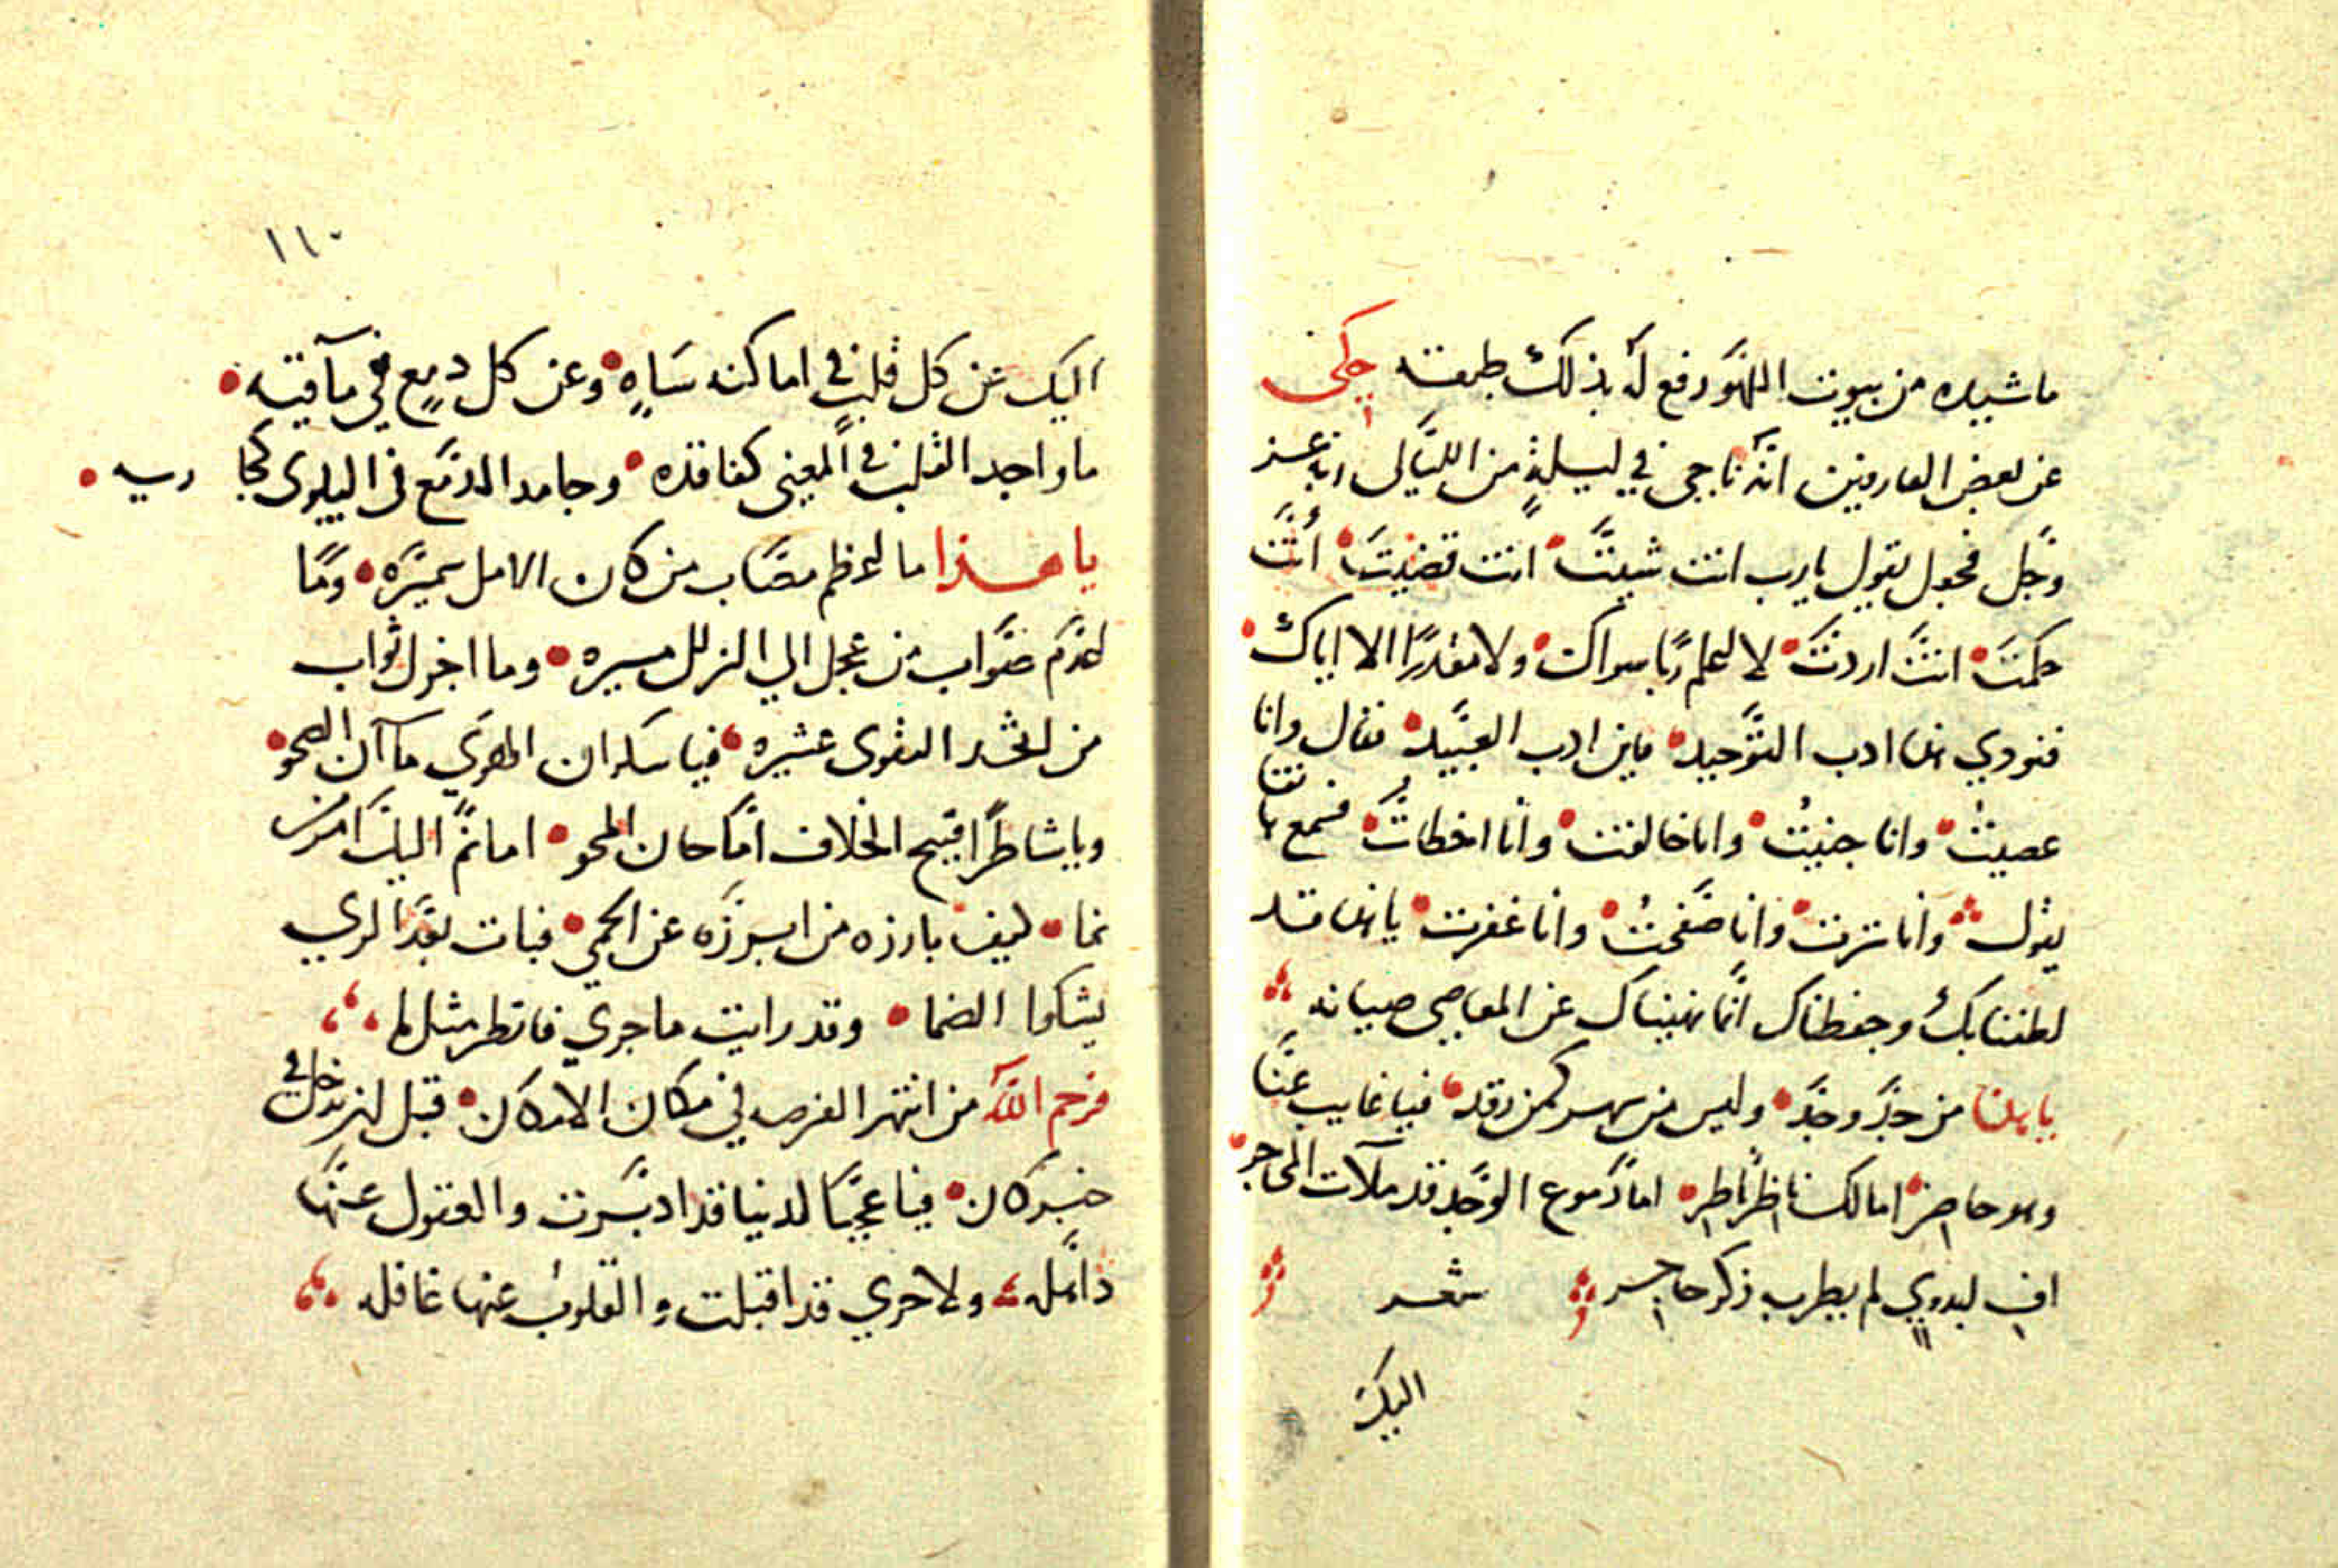 ماشيده من بيوت اللهو رفع له بذلك طبقته حكى
عن بعض العارفين انه ناجى في ليلة من الليالي ربه عز
وجل فجعل يقول يارب انت شيت انت قضيت انت
حكمت انت اردت لا لنعلم ربا سواك ولا مقدرا الا اياك
فنودي هذا ادب التوحيد فاين ادب العبيد فقال وانا
عصيت وانا جنيت وانا خالفت وانا اخطات فسمع هاتفا
يقول وانا سترت وانا صفحت وانا غفرت يا هذا قد
لطفنا بك وحفظناك انما نهيناك عن المعاصي صيانه
يا هذا من جد وجد وليس من سهر كمن رقد فيا غايب عنا
وهو حاضر امالك ناظر ناظر اما دموع الوجد قد ملآت المحاجر
اف لبدوي لم يطربه ذكر حاجر شعر
اليك
١١٠
اليك عن كل قلب في اماكنه ساه وعن كل دمع في مآقيه
ما واجد القلب في المعنى كفاقده وجامد الدمع في البلوى كجاريه
يا هذا ما اعظم مصاب من كان الامل سميره وما
اعدم صواب من عجل الي الزلل مسيره وما اجزل ثواب
من اتخذ التقوى عشيره فيا سكران الهوي ما آن الصحو
ويا شاطرا قبيح الخلاف اما حان المحو اما نم اليك امر من
نما كيف بارزه من ابرزه عن الحمي فبات بعد الري
يشكوا الضما وقد رايت ما جري فانظر مثل لم
فرحم الله من انتهز الفرصه في مكان الامكان قبل ان يدخل في
خبر كان فيا عجبا لدنيا قد ادبرت والعقول عنها
ذاهله ولاخري قد اقبلت والقلوب عنها غافله